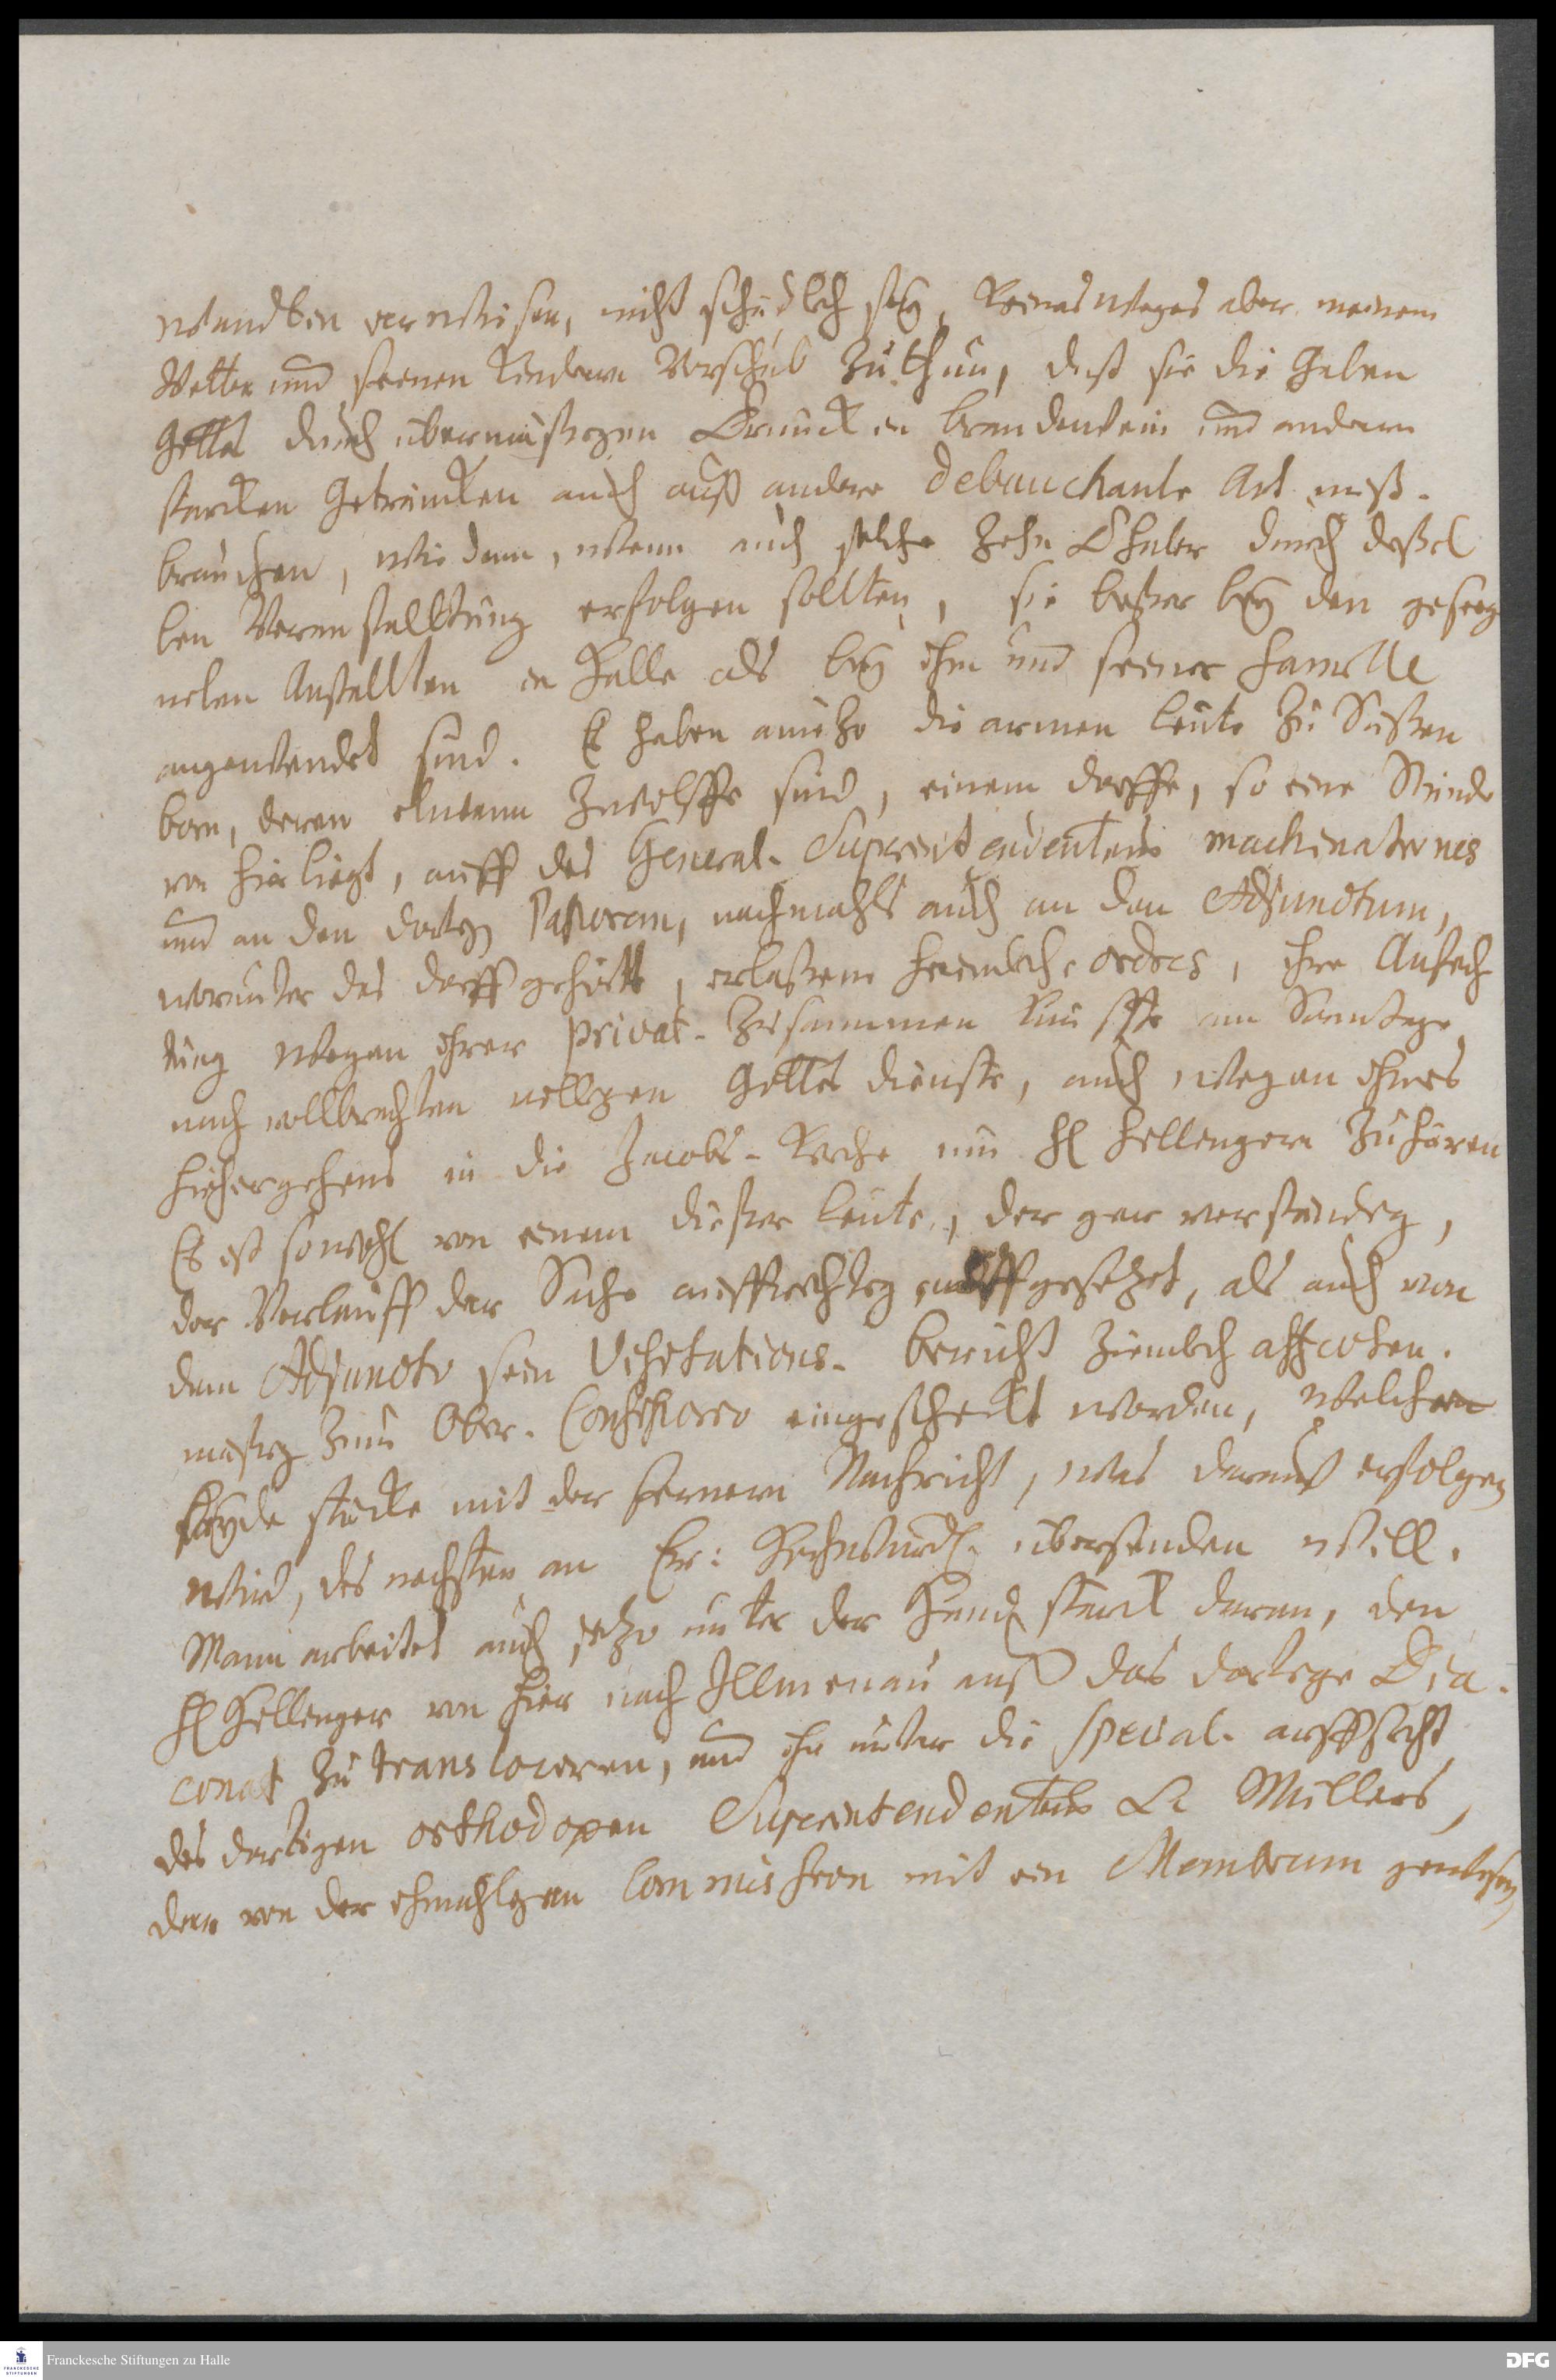 wandten verweisen, nicht schädlich sey, keines weges aber meinem
Vetter und seinen Kindern Vorschub zu thun, daß sie die Gaben
Gottes durch übermäßigen Trunck in brandewein und andern
starcken Geträncken auch auff andere debauchante Art miß-
brauchen, wie dann, wenn auch solche zehn Thaler durch deßel
ben Veranstalltung erfolgen sollten, sie beßer bey den geseeg
neten Anstallten in Halle als bey ihm und seiner Famille
angewendet sind. Es haben anitzo die armen leute zu Süßen
born, deren etwann zwölffe sind, einem dorffe, so eine Stunde
von hier liegt, auff des General-Superintendentens machinationes
und an den dortigen Pastorem, nachmahls auch an den Adjunctum,
worunter das dorff gehöret, erlaßene heimliche ordres, ihre Anfech
tung wegen ihrer privat-Zusammenkunffte am Sonntage
nach vollbrachten völligen Gottes dienste, auch wegen ihres
hiehergehens in die Jacobs-Kirche um H Hellengern zu hören
Es ist sowohl von einem dießer leute, der gar verständig,
der Verlauff der Sache auffrichtig auffgesetzet, als auch von
dem Adjuncto sein Visitations-bericht ziemlich affecten-
mäßig zum Ober-Consistorio eingeschickt worden, welche
beyde stücke mit der fernern Nachricht, was darauff erfolgen
wird, des nechsten an Ew: Hochwürd. übersenden will.
Mann arbeitet auch jetzo unter der Hand starck daran, den
H Hellenger von hier nach Illmenau auff das dortige Dia-
conat zu translociren, und ihn unter die special-auffsicht
des dortigen orthodoxen Superintendentens Müllers,
der von der ehmahligen Commission mit ein Membrum gewesen
Franckesche Stiftungen zu Halle
FRANCKESCHE STIFTUNGEN
DFG